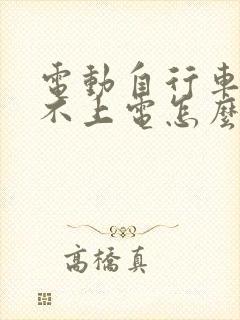 電動自行車
不上電怎麼
高橋真